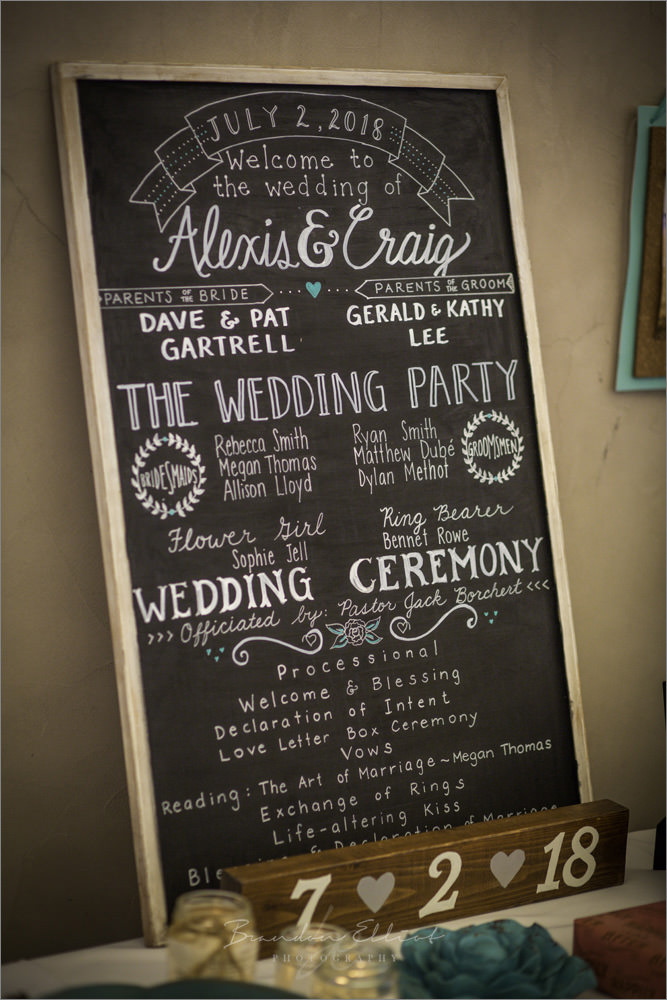 JULY 2, 2018
Welcome to
the wedding of
Alexis & Craig
PARENTS OF THE BRIDE
PARENTS OF THE GROOM
DAVE & PAT
GARTRELL
GERALD & KATHY
LEE
THE WEDDING PARTY
BRIDESMAIDS
Rebecca Smith
Megan Thomas
Allison Lloyd
Ryan Smith
Matthew Dubé
Dylan Methot
GROOMSMEN
Flower Girl
Sophie Jell
Ring Bearer
Bennet Rowe
WEDDING CEREMONY
>>> Officiated by: Pastor Jack Borchert <<<
Processional
Welcome & Blessing
Declaration of Intent
Love Letter Box Ceremony
Vows
Reading: The Art of Marriage ~ Megan Thomas
Exchange of Rings
Life-altering Kiss
& Declaration of Marriage
7 ♥ 2 ♥ 18
Brandon Elliot
PHOTOGRAPHY